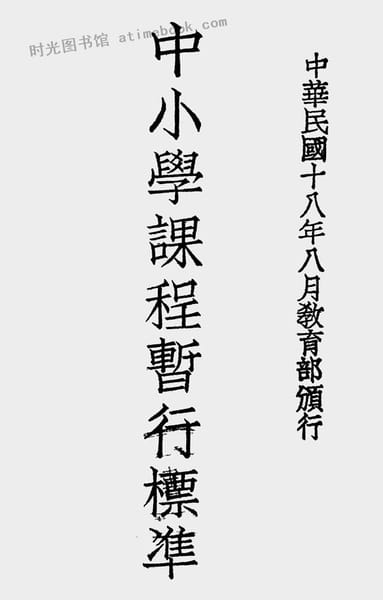 时光图书馆 atimebook.com
中華民國十八年八月教育部頒行
中小學課程暫行標準